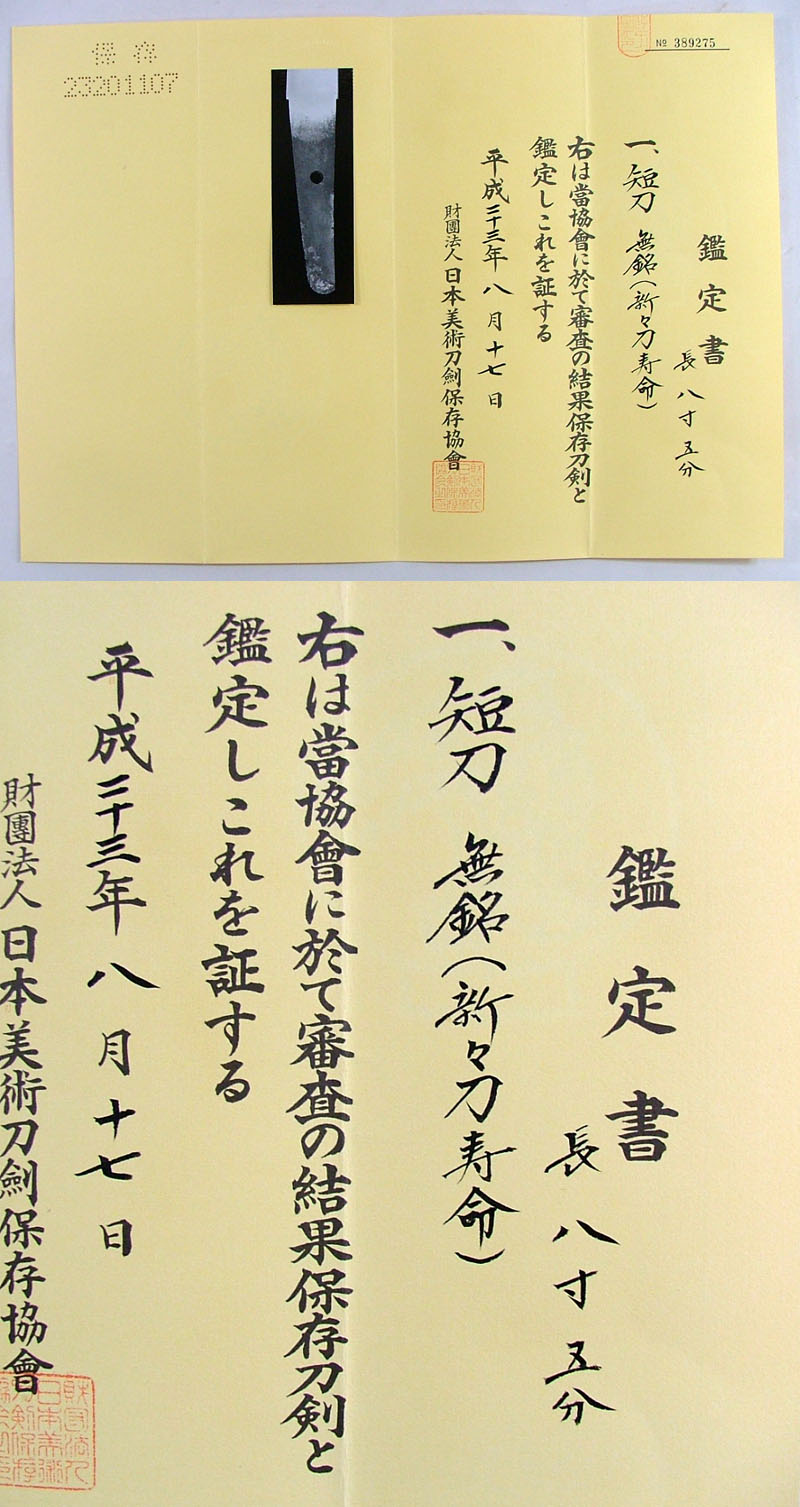 No 389275
鑑定書
長 八寸 五分
一、短刀 無銘(新々刀寿命)
右は當協會に於て審査の結果保存刀剣と
鑑定しこれを証する
平成二十三年 八月 十七日
財團法人 日本美術刀劍保存協會
保存
23201107
鑑定書
長 八寸 五分
一、短刀 無銘(新々刀寿命)
右は當協會に於て審査の結果保存刀剣と
鑑定しこれを証する
平成二十三年 八月 十七日
財團法人 日本美術刀劍保存協會